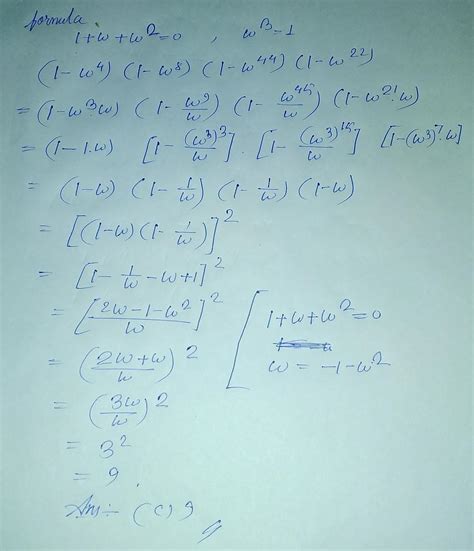 formula
1+ω+ω²=0 , ω³=1
(1-ω⁴) (1-ω⁸) (1-ω⁴⁴) (1-ω²²)
= (1-ω³ω) (1-ω⁹/ω) (1-ω⁴⁵/ω) (1-ω²¹.ω)
= (1-1.ω) [1-(ω³)³/ω] . [1-(ω³)¹⁵/ω] [1-(ω³)⁷.ω]
= (1-ω) (1-1/ω) (1-1/ω) (1-ω)
= [(1-ω) (1-1/ω)]²
= [1-1/ω-ω+1]²
= [(2ω-1-ω²)/ω]²
1+ω+ω²=0
= ((2ω+ω)/ω)²
ω = -1-ω²
= (3ω/ω)²
= 3²
= 9.
Ans:- (c) 9